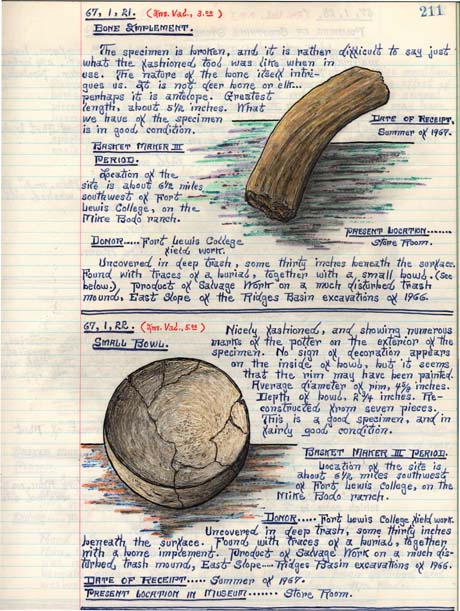 67, 1, 21. (Ins. Vad., 3.00) 211
BONE IMPLEMENT.
The specimen is broken, and it is rather difficult to say just
what the fashioned tool was like when in
use. The nature of the bone itself intri-
gues us. It is not deer bone or elk...
perhaps it is antelope. Greatest
length, about 5½ inches. What
we have of the specimen
is in good condition.
DATE OF RECEIPT.
Summer of 1967.
BASKET MAKER III
PERIOD.
Location of the
site is about 6½ miles
southwest of Fort
Lewis College, on the
Mike Bodo ranch.
PRESENT LOCATION.......
Store Room.
DONOR..... Fort Lewis College
field work.
Uncovered in deep trash, some thirty inches beneath the surface.
Found with traces of a burial, together with a small bowl. (See
below.), Product of Salvage Work on a much disturbed trash
mound, East Slope of the Ridges Basin excavations of 1966.
67, 1, 22. (Ins. Vad., 5.00)
SMALL BOWL.
Nicely fashioned, and showing numerous
marks of the potter on the exterior of the
specimen. No sign of decoration appears
on the inside of bowl, but it seems
that the rim may have been painted.
Average diameter of rim, 4⅝ inches.
Depth of bowl, 2¼ inches. Re-
constructed from seven pieces.
This is a good specimen, and in
fairly good condition.
BASKET MAKER III PERIOD.
Location of the site is
about 6½ miles southwest
of Fort Lewis College, on the
Mike Bodo ranch.
DONOR..... Fort Lewis College field work.
Uncovered in deep trash, some thirty inches
beneath the surface. Found with traces of a burial, together
with a bone implement. Product of Salvage Work on a much dis-
turbed trash mound, East Slope--- Ridges Basin excavations of 1966.
DATE OF RECEIPT..... Summer of 1967.
PRESENT LOCATION IN MUSEUM....... Store Room.